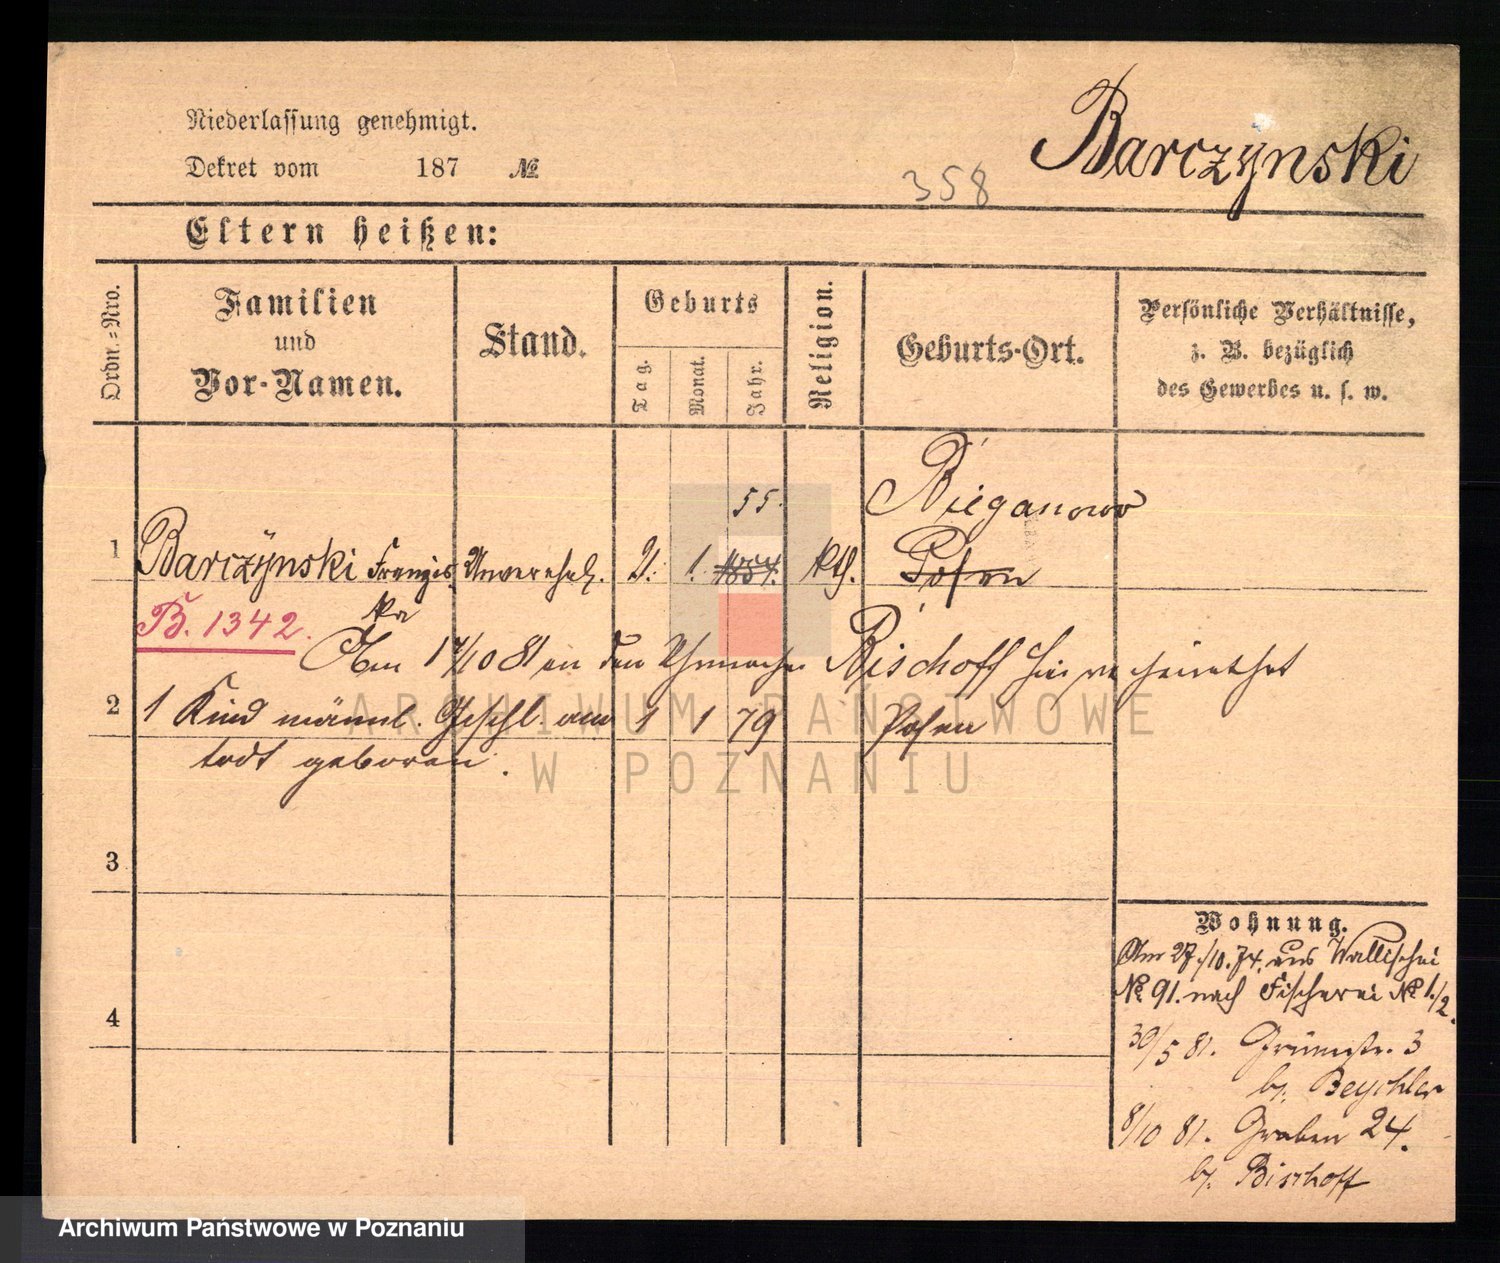 Niederlassung genehmigt.
Barczynski
Dekret vom 187 №
358
Eltern heißen:
Ordn.-Nro.
Familien
und
Vor-Namen.
Stand.
Geburts
Tag.
Monat.
Jahr.
Religion.
Geburts-Ort.
Persönliche Verhältnisse,
z. B. bezüglich
des Gewerbes u. s. w.
55.
Bieganowo
1 Barczÿnski Franzis Unverehel. 2. 1. 1854. Kth. Posen
ka
B. 1342.
Am 17/10 81 an den Uhrmacher Bischoff hier verheirathet
2 1 Kind männl. Geschl. am 1 1 79 Posen
todt geboren.
ARCHIWUM PAŃSTWOWE
W POZNANIU
3
4
Wohnung.
Am 27./10. 74. aus Wallischei
№ 91. nach Fischerei № 1./2.
30/5 81. Grünestr. 3
b/. Beychler
8/10 81. Graben 24.
b/. Bischoff
Archiwum Państwowe w Poznaniu